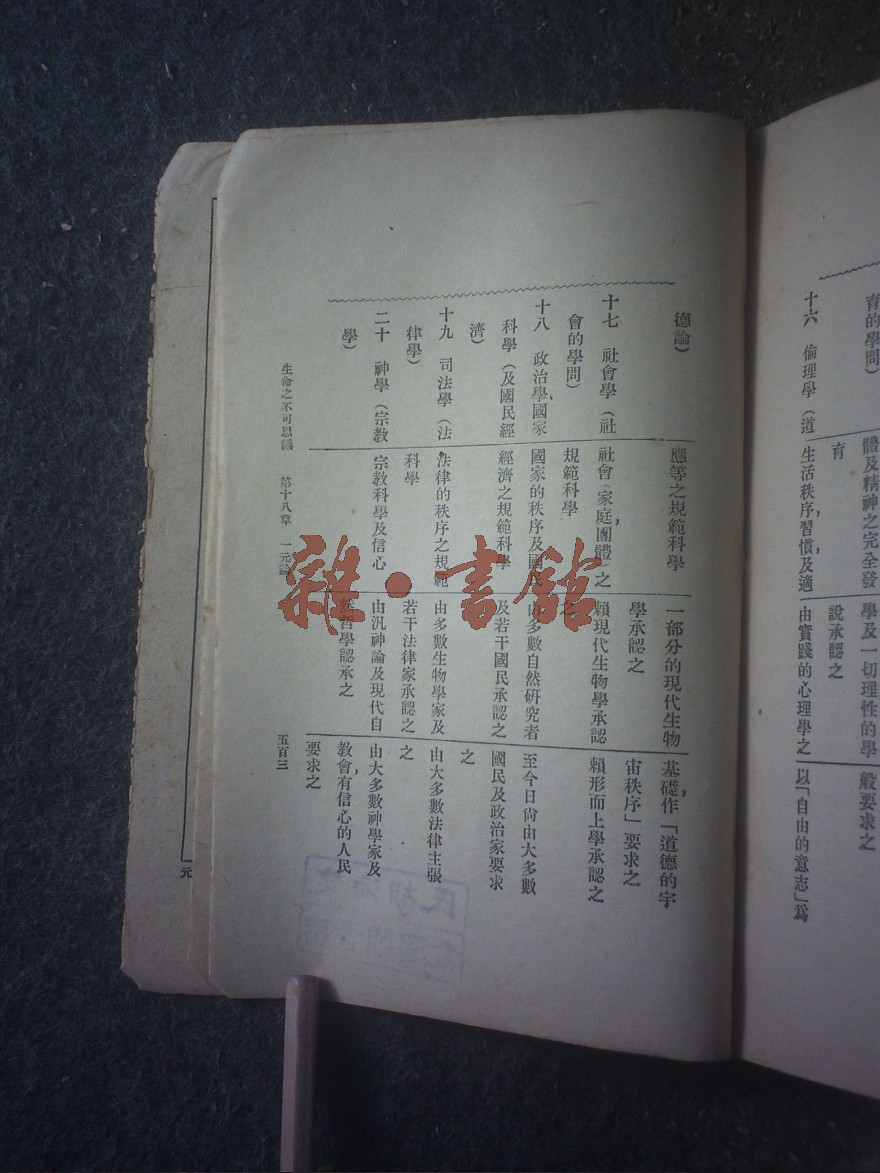 育的學問) 體及精神之完全發 學及一切理性的學 般要求之
育 說承認之
十六 倫理學(道 生活秩序,習慣,及適 由實踐的心理學之 以「自由的意志」爲
德論) 應等之規範科學 一部分的現代生物 基礎,作「道德的宇
學承認之 宙秩序」要求之
十七 社會學(社 社會(家庭,團體)之 賴現代生物學承認 賴形而上學承認之
會的學問) 規範科學 之
十八 政治學,國家 國家的秩序及國民 由多數自然研究者 至今日尙由大多數
科學(及國民經 經濟之規範科學 及若干國民承認之 國民及政治家要求
濟) 之
十九 司法學(法 法律的秩序之規範 由多數生物學家及 由大多數法律主張
律學) 科學 若干法律家承認之 之
二十 神學(宗教 宗教科學及信心 由汎神論及現代自 由大多數神學家及
學) 然哲學認承之 教會,有信心的人民
要求之
生命之不可思議 第十八章 一元論 五百三
元
雜·書館